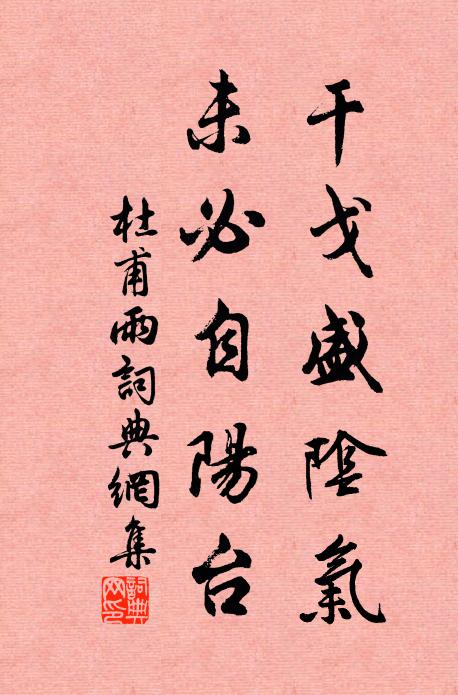 干戈盛陰氣
未必自陽台
杜甫雨詞典網集
詞典網印